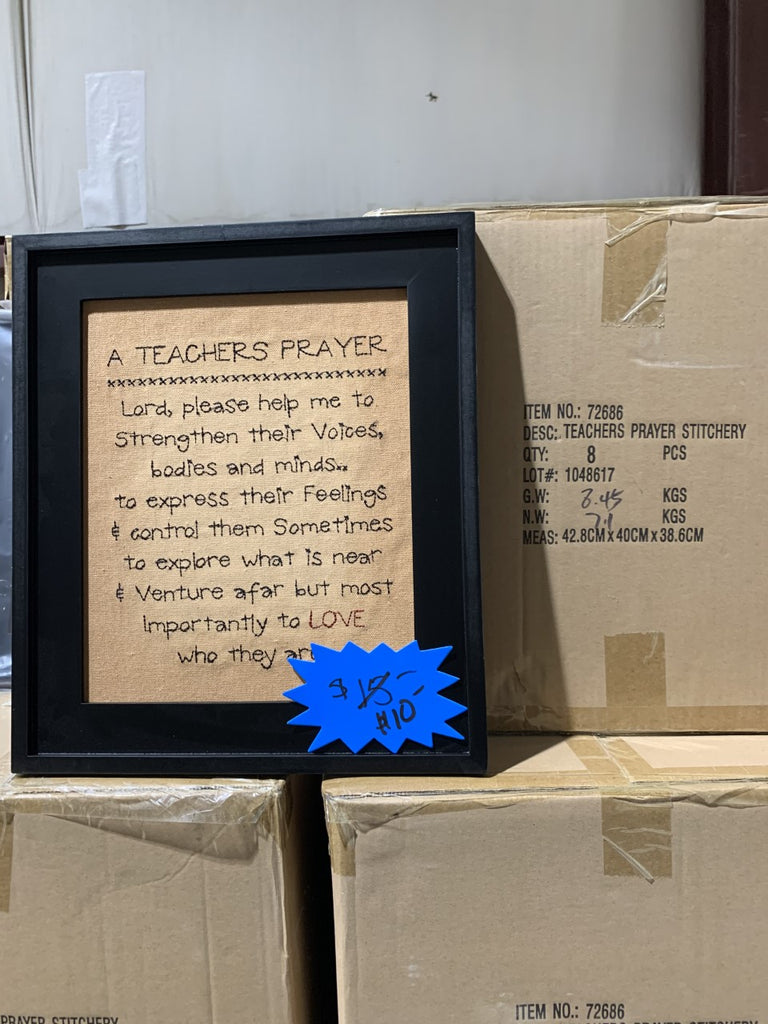 A TEACHERS PRAYER
Lord, please help me to
Strengthen their Voices,
bodies and minds..
to express their Feelings
& control them Sometimes
to explore what is near
& Venture afar but most
Importantly to LOVE
who they are
$ 15-
#10-
ITEM NO.: 72686
DESC: TEACHERS PRAYER STITCHERY
QTY: 8 PCS
LOT#: 1048617
G.W: 8.45 KGS
N.W: 7.1 KGS
MEAS: 42.8CM x 40CM x 38.6CM
PRAYER STITCHERY
ITEM NO.: 72686
PRAYER STITCHERY